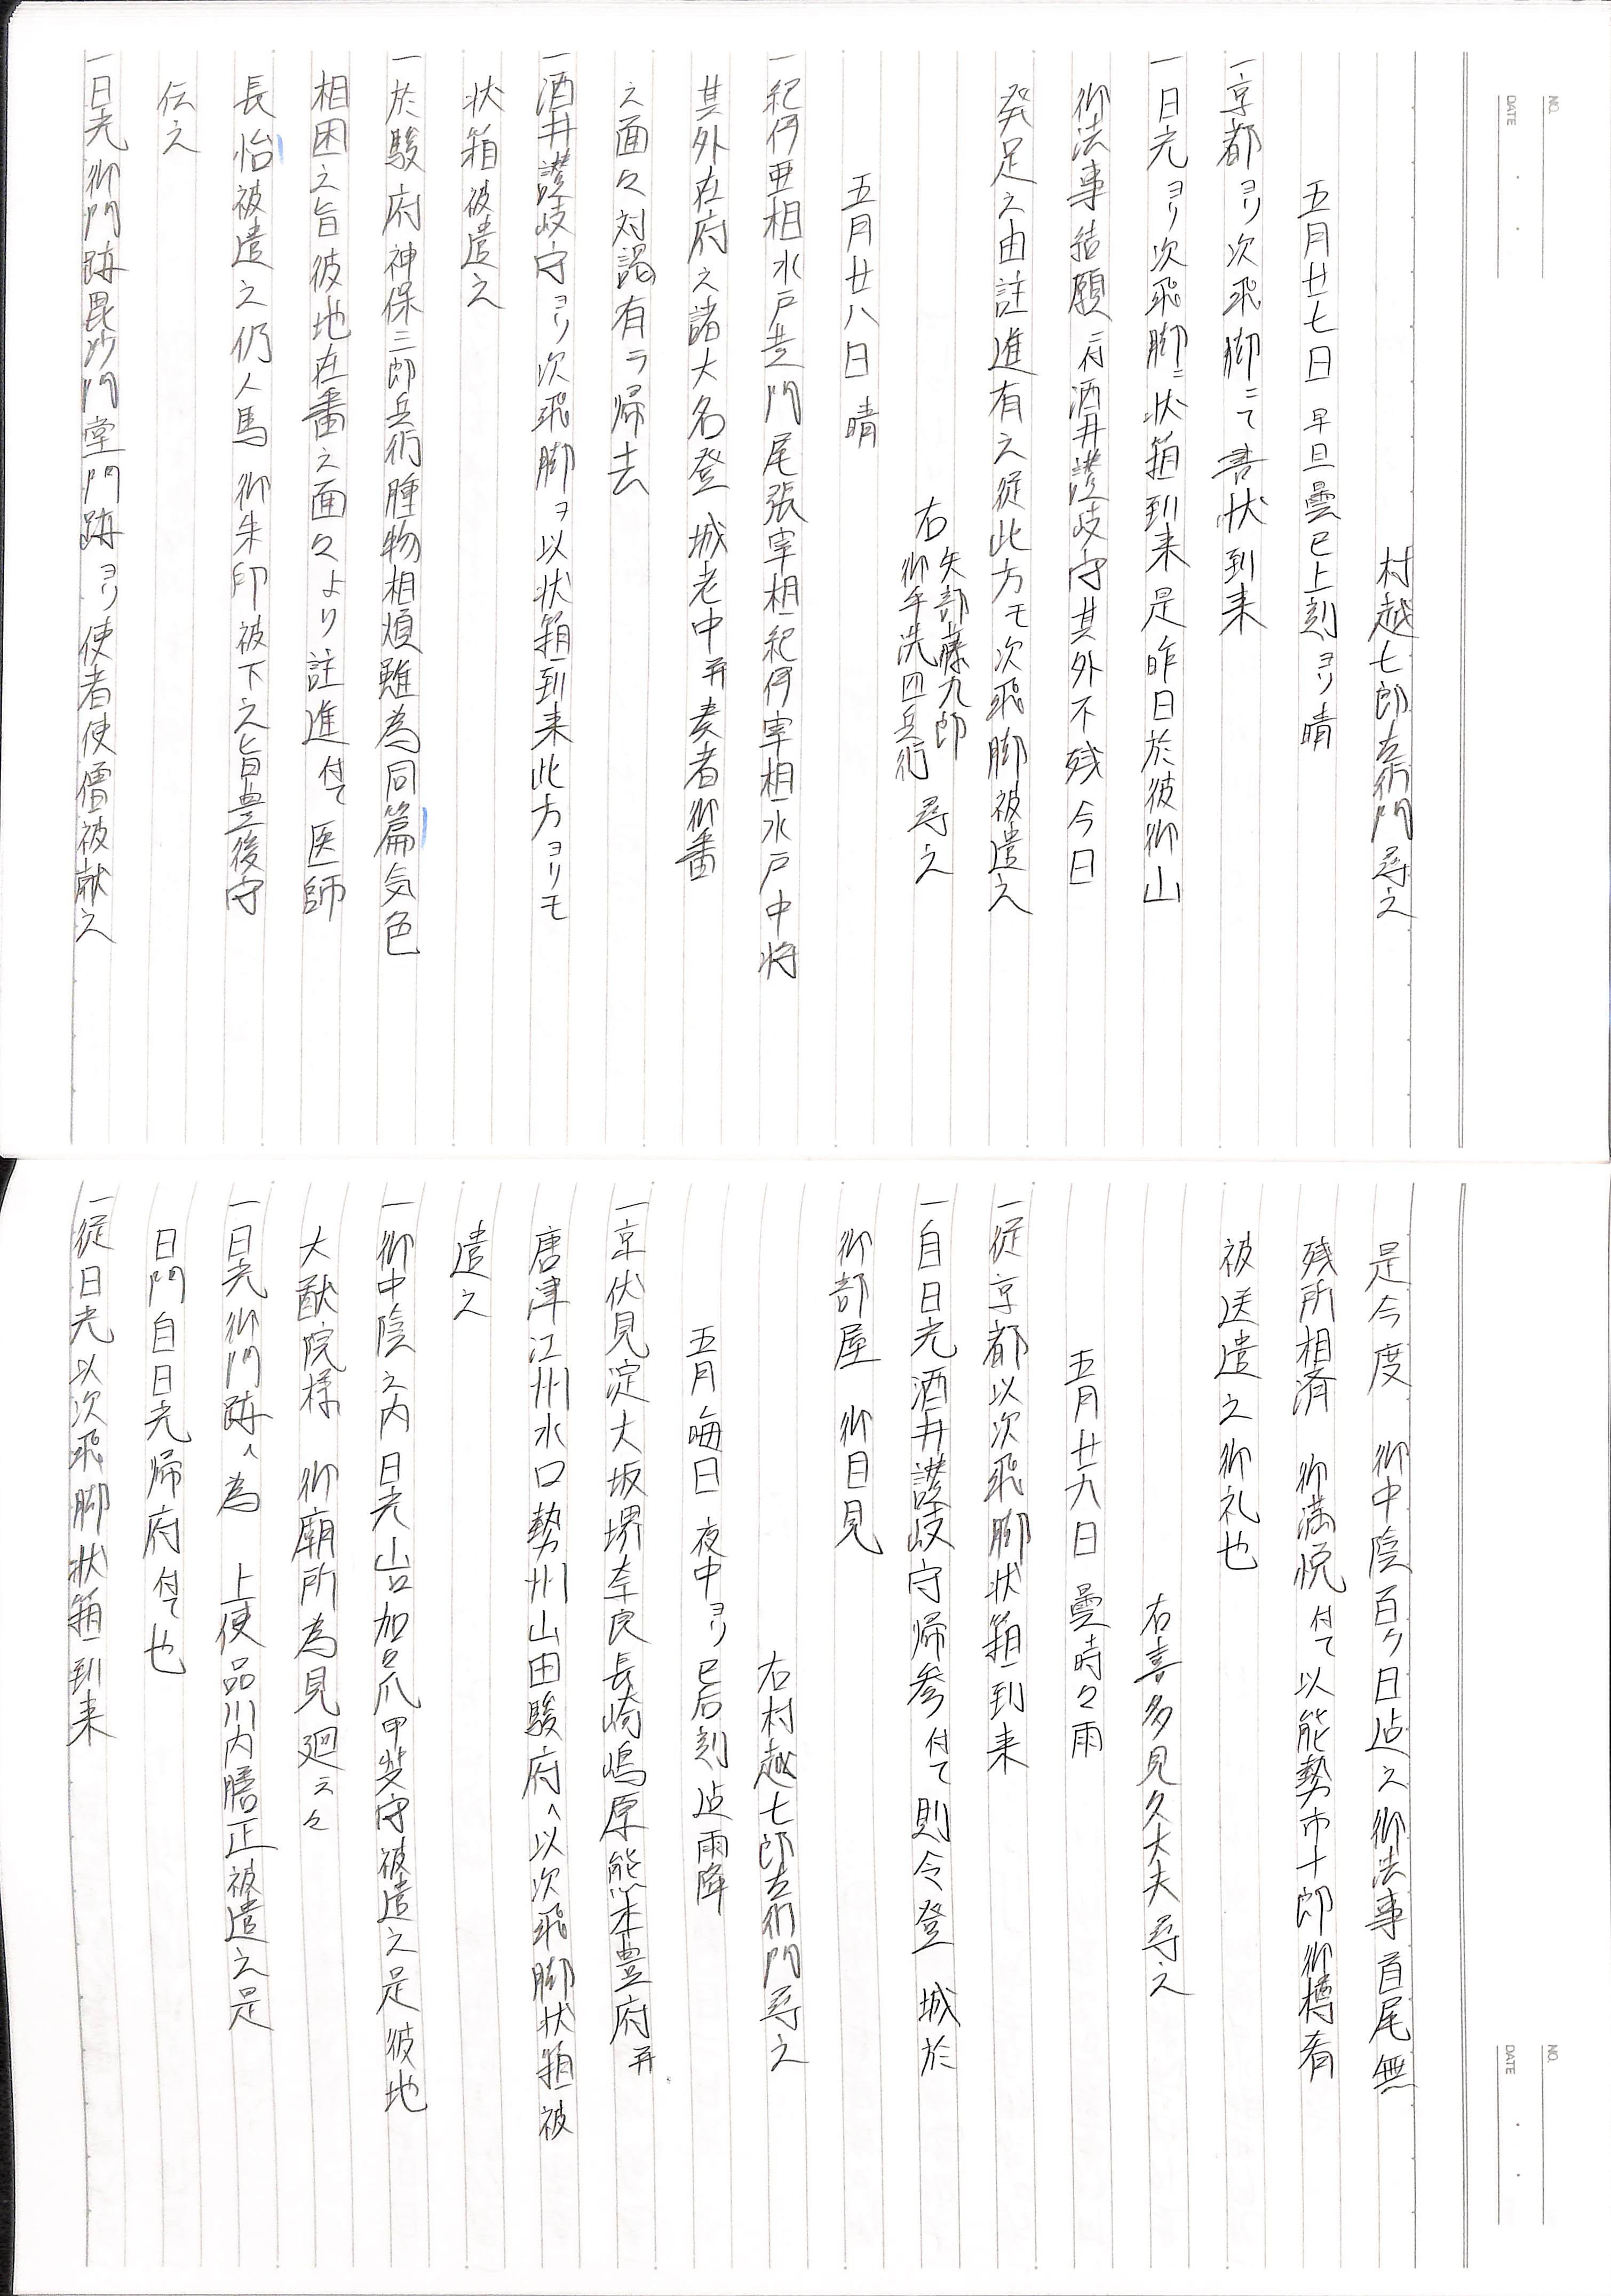 NO.
DATE
村越七郎左衛門尋之
五月廿七日 早旦曇巳上刻ヨリ晴
一京都ヨリ次飛脚ニて書状到来
一日光ヨリ次飛脚ニ状箱到来是昨日於彼御山
御法事結願ニ付酒井讃岐守其外不残今日
発足之由註進有之従此方モ次飛脚被遣之
右 矢部藤九郎
御手洗四兵衛 尋之
五月廿八日 晴
一紀伊亜相水戸黄門尾張宰相紀伊宰相水戸中将
其外在府之諸大名登 城老中并奏者御番
之面々対謁有ラ帰去
一酒井讃岐守ヨリ次飛脚ヲ以状箱到来此方ヨリモ
状箱被遣之
一於駿府神保三郎兵衛腫物相煩雖為同篇気色
相困之旨彼地在番之面々より註進付て医師
長怡被遣之仍人馬 御朱印被下之旨豊後守
伝之
一日光御門跡毘沙門堂門跡ヨリ使者使僧被献之
NO.
DATE
是今度 御中陰百ケ日迠之御法事首尾無
残所相済 御満悦付て以能勢市十郎御樽肴
被送遣之御礼也
右喜多見久大夫尋之
五月廿九日 曇時々雨
一従京都以次飛脚状箱到来
一自日光酒井讃岐守帰参付て則令登 城於
御部屋 御目見
右村越七郎左衛門尋之
五月晦日 夜中ヨリ巳后刻迠雨降
一京伏見淀大坂堺奈良長崎嶋原熊本豊府并
唐津江州水口勢州山田駿府へ以次飛脚状箱被
遣之
一御中陰之内日光山 加々爪甲斐守被遣之是彼地
大猷院様 御廟所為見廻云々
一日光御門跡へ為 上使品川内膳正被遣之是
日門自日光帰府付て也
一従日光以次飛脚状箱到来